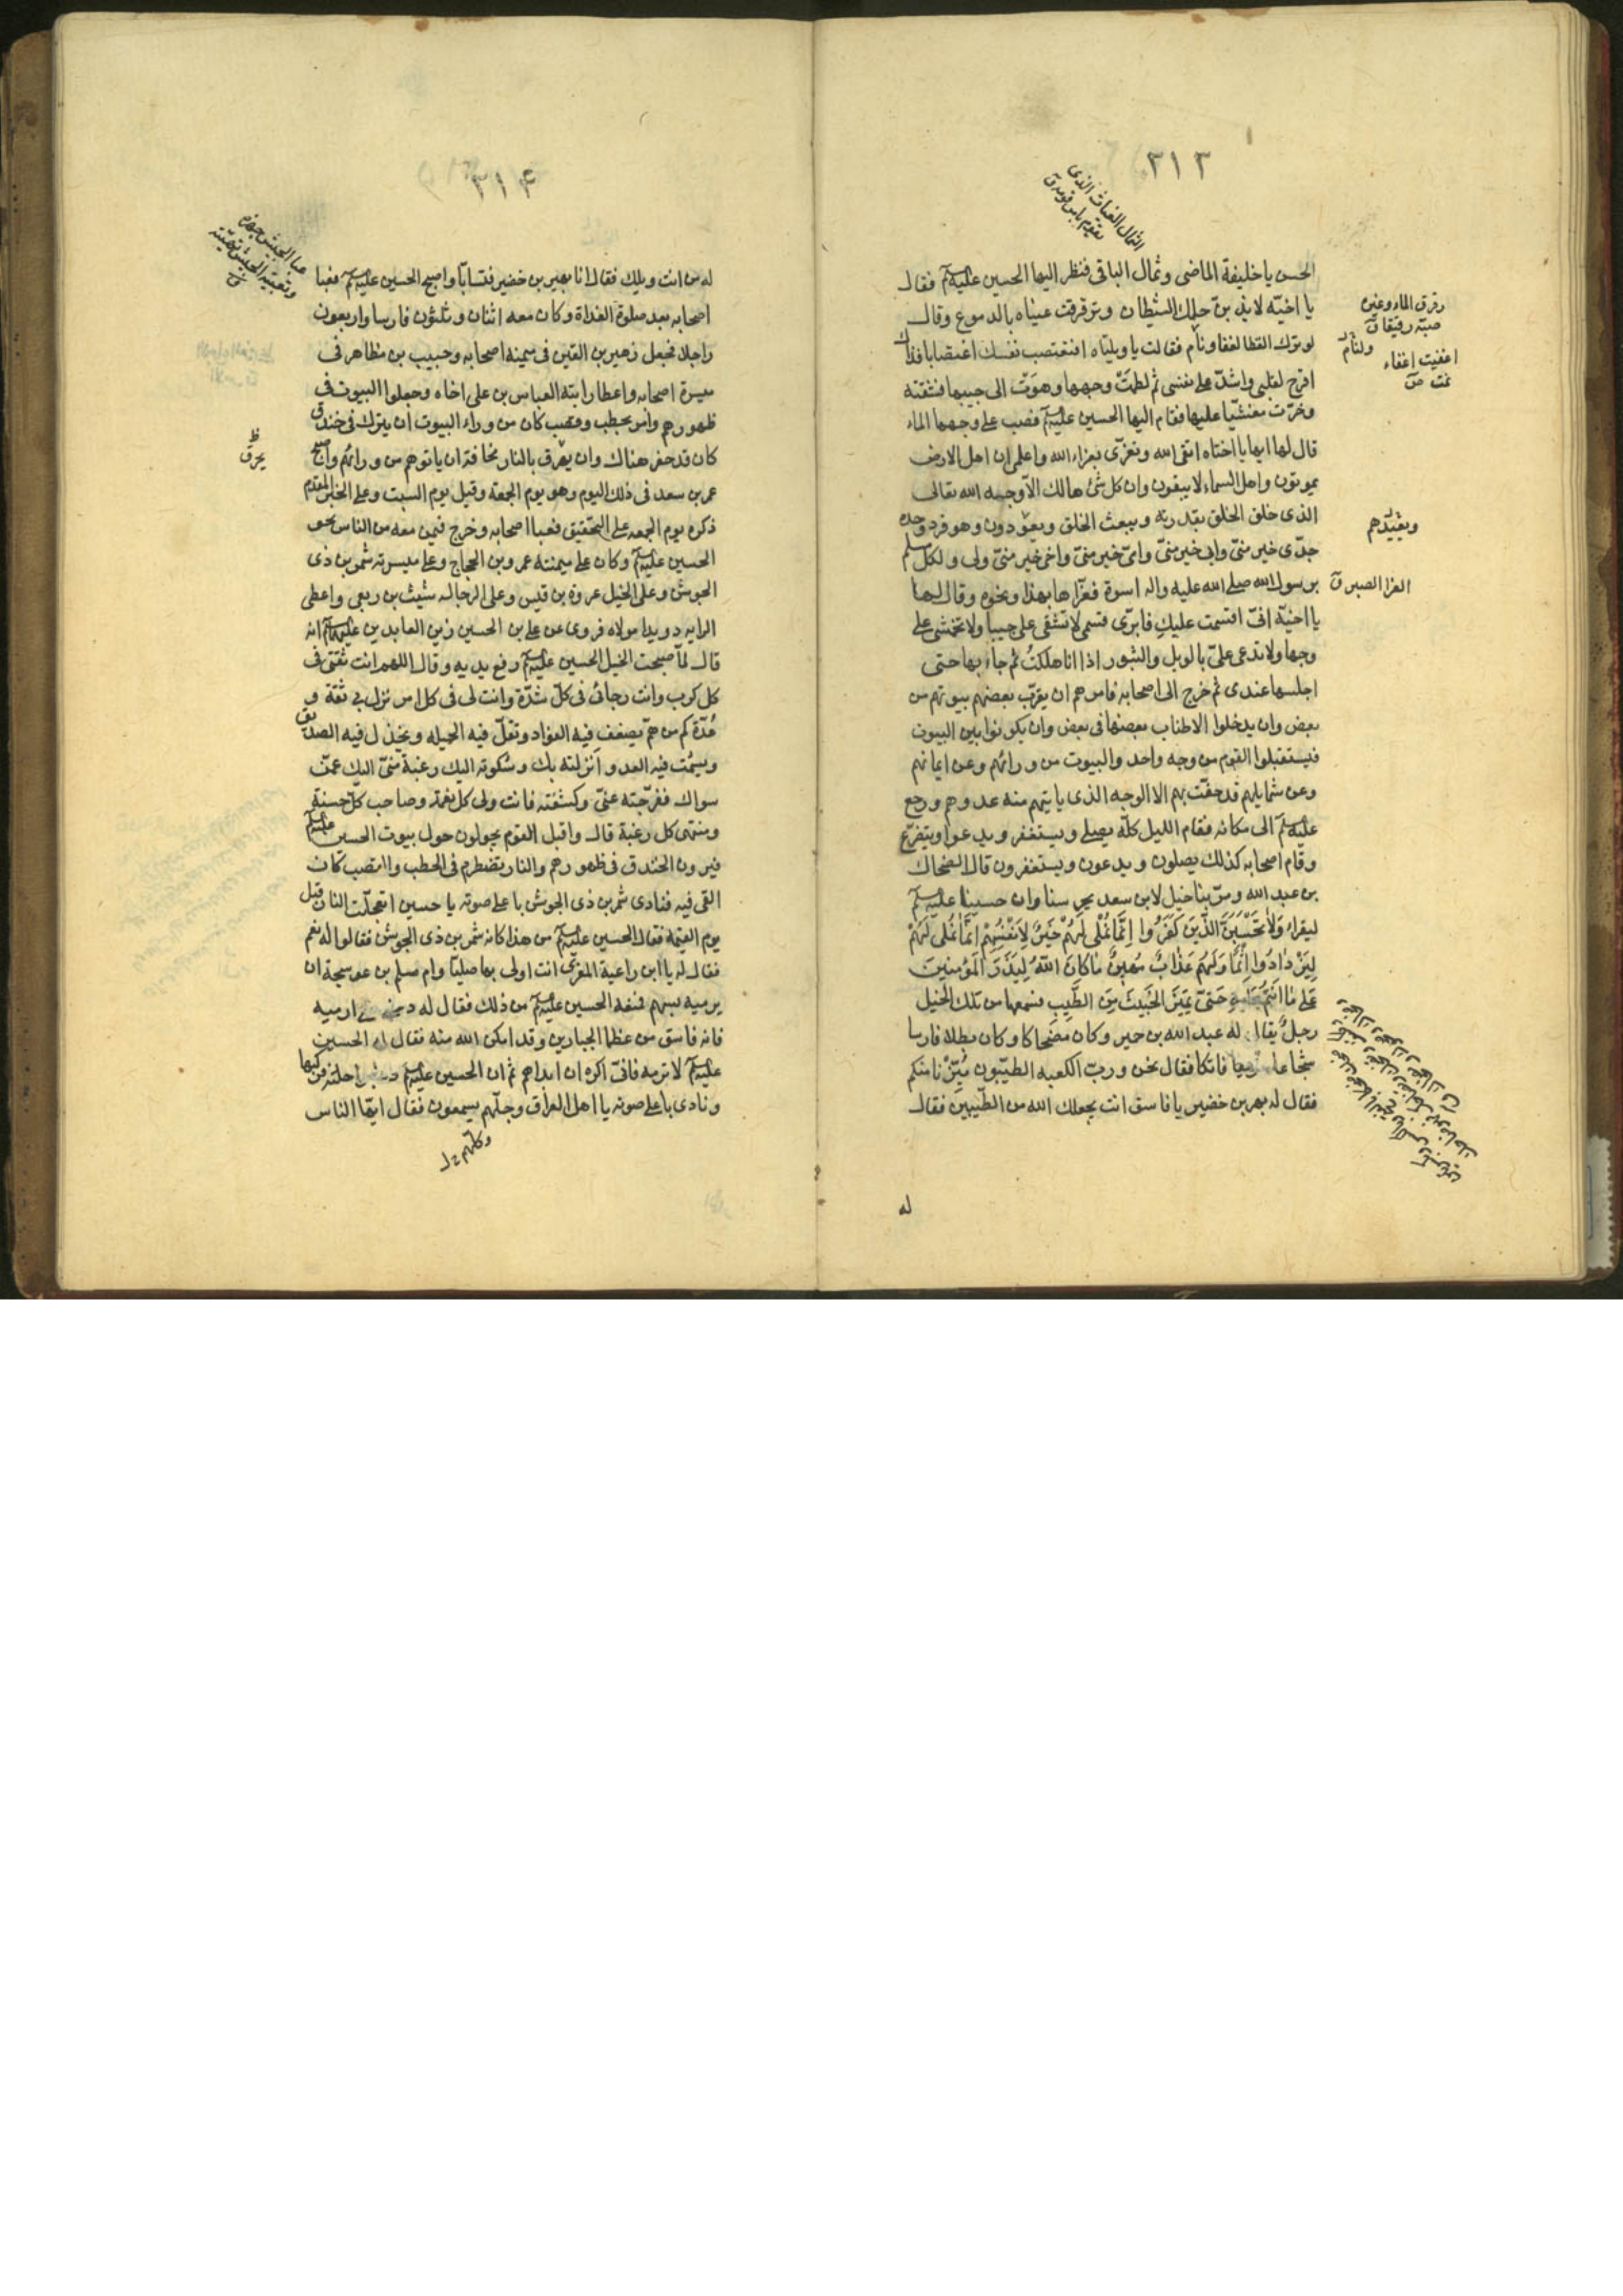 ٣١٣
الثمال الغياث الذى
يقوم بامر قومه ق
الحسن يا خليفة الماضى وثمال الباقى فنظر اليها الحسين عليه السلم فقال
يا اخيّه لا يذهبنّ حلمك الشيطان وترقرقت عيناه بالدموع وقال
لو ترك القطا لغفا ونام فقالت يا ويلتاه افتغتصب نفسك اغتصابا فذاك
اقرح لقلبى واشدّ على نفسى ثم لطمَتْ وجهها وهوَتْ الى جيبها فشقته
وخرّت مغشيّا عليها فقام اليها الحسين عليه السلم فصب على وجهها الماء
قال لها ايها يا اختاه اتقى الله وتعزّى بعزاء الله واعلمى ان اهل الارض
يموتون واهل السماء لا يبقون وان كل شئ هالك الّا وجهه الله تعالى
الذى خلق الخلق بقدرته ويبعث الخلق ويعودون وهو فرد وحده
جدّى خير منىّ وابى خير منىّ وامىّ خير منىّ واخى خير منىّ ولى ولكل مسلم
برسول الله صلى الله عليه واله اسوة فعزّاها بهذا ونحوه وقال لها
يا اخيّة انىّ اقسمت عليكِ فابرّى قسمى لا تشقى علىّ جيبا ولا تخمشى علىّ
وجها ولا تدعى علىّ بالويل والثبور اذا انا هلكتُ ثم جاء بها حتى
اجلسها عندى ثم خرج الى اصحابه فامرهم ان يقرّب بعضهم بيوتهم من
بعض وان يدخلوا الاطناب بعضها فى بعض وان يكونوا بين البيوت
فيستقبلوا القوم من وجه واحد والبيوت من ورائهم وعن ايمانهم
وعن شمايلهم قد حفّت بهم الا الوجه الذى ياتيهم منه عدوهم ورجع
عليه السلم الى مكانه فقام الليل كلّه يصلى ويستغفر ويدعوا ويتضرّع
وقام اصحابه كذلك يصلون ويدعون ويستغفرون قال الضحاك
بن عبد الله ومرّ بنا خيل لابن سعد يحرسنا وان حسينا عليه السلم
ليقراء وَلا يَحْسَبَنَّ الَّذينَ كَفَرُوا اِنَّما نُمْلى لَهُمْ خَيْرٌ لِاَنْفُسِهِمْ اِنَّما نُمْلى لَهُمْ
لِيَزْدادُوا اِثْمًا وَلَهُمْ عَذابٌ مُهينٌ ما كانَ اللهُ لِيَذَرَ المُؤمنينَ
عَلى ما انتُمْ عَلَيهِ حَتىّ يَميزَ الخَبيثَ مِنَ الطَّيِبِ فسمعها من تلك الخيل
رجلٌ يقال له عبد الله بن وكان مضحاكا وكان بطلا فارسا
شجاعا فاتكا فقال نحن وربّ الكعبه الطيّبون مُيِّزْنا منكم
فقال له برير بن خضير يا فاسق انت يجعلك الله من الطّيبين فقال
له
رقرق الماء وغيره
صبّه رقيقا ق
ولنام
اغفيت اغفاء
نمت ص
العزا الصبر ق
٣١۴
عبا الجيش جهزه
وتعبية الجيش تهيئته
له من انت ويلك فقال انا برير بن خضير فتسابّا واصبح الحسين عليه السلم فعبا
اصحابه بعد صلوة الغداة وكان معه اثنان وثلثون فارسا واربعون
راجلا فجعل زهير بن القين فى ميمنه اصحابه وحبيب بن مظاهر فى
ميسرة اصحابه واعطا رايته العباس بن على اخاه وجعلوا البيوت فى
ظهورهم وامر بحطب وقصب كان من وراء البيوت ان يترك فى خندق
كان قد حفر هناك وان يحرق بالنار مخافة ان ياتوهم من ورائهم واصبح
عمر بن سعد فى ذلك اليوم وهو يوم الجمعة وقيل يوم السبت وعلى الخبر المقدم
ذكره يوم الجمعه على التحقيق فعبا اصحابه وخرج فيمن معه من الناس نحو
الحسين عليه السلم وكان على ميمنته عمرو بن الحجاج وعلى ميسرته شمر بن ذى
الجوشن وعلى الخيل عروة بن قيس وعلى الرجاله شبث بن ربعى واعطى
الرايه دويدا مولاه فروى عن على بن الحسين زين العابدين عليهما السلم انه
قال لمّا صبحت الخيل الحسين عليه السلم رفع يديه وقال اللهم انت ثقتى فى
كل كرب وانت رجائى فى كلّ شدّة وانت لى فى كل امر نزل بى ثقة و
عُدّة كم من همّ يضعف فيه الفؤاد وتقلّ فيه الحيله ويخذل فيه الصديق
ويشمت فيه العدو اَنزلته بك وشكوته اليك رغبة منىّ اليك عمّن
سواك ففرّجته عنىّ وكشفته فانت ولى كل نعمة وصاحب كل حسنة
ومنتهى كل رغبة قال واقبل القوم يجولون حول بيوت الحسين عليه السلم
فيرون الخندق فى ظهورهم والنار تضطرم فى الحطب والقصب كان
القى فيه فنادى شمر بن ذى الجوشن باعلى صوته يا حسين اتعجلّت النار قبل
يوم القيمة فقال الحسين عليه السلم من هذا كانه شمر بن ذى الجوشن فقالوا له نعم
فقال له يا ابن راعية المعزى انت اولى بها صليّا ورام مسلم بن عوسجة ان
يرميه بسهم فمنعه الحسين عليه السلم من ذلك فقال له ارميه
فانه فاسق من عظما الجبارين وقد امكن الله منه فقال له الحسين
عليه السلم لا ترمه فانىّ اكره ان ابداهم ثم ان الحسين عليه السلم راحلته فركبها
ونادى باعلى صوته يا اهل العراق وجلّهم يسمعون فقال ايهّا الناس
وكلّهم خ ل
ظ
يحرق